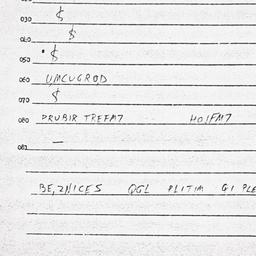 030 $
040 $
050 $
060 UMCUGROD
070 $
080 PRUBIR TREFM7 HOIFM7
081 —
BE,ZNICES QGL PLITIM GI PLE